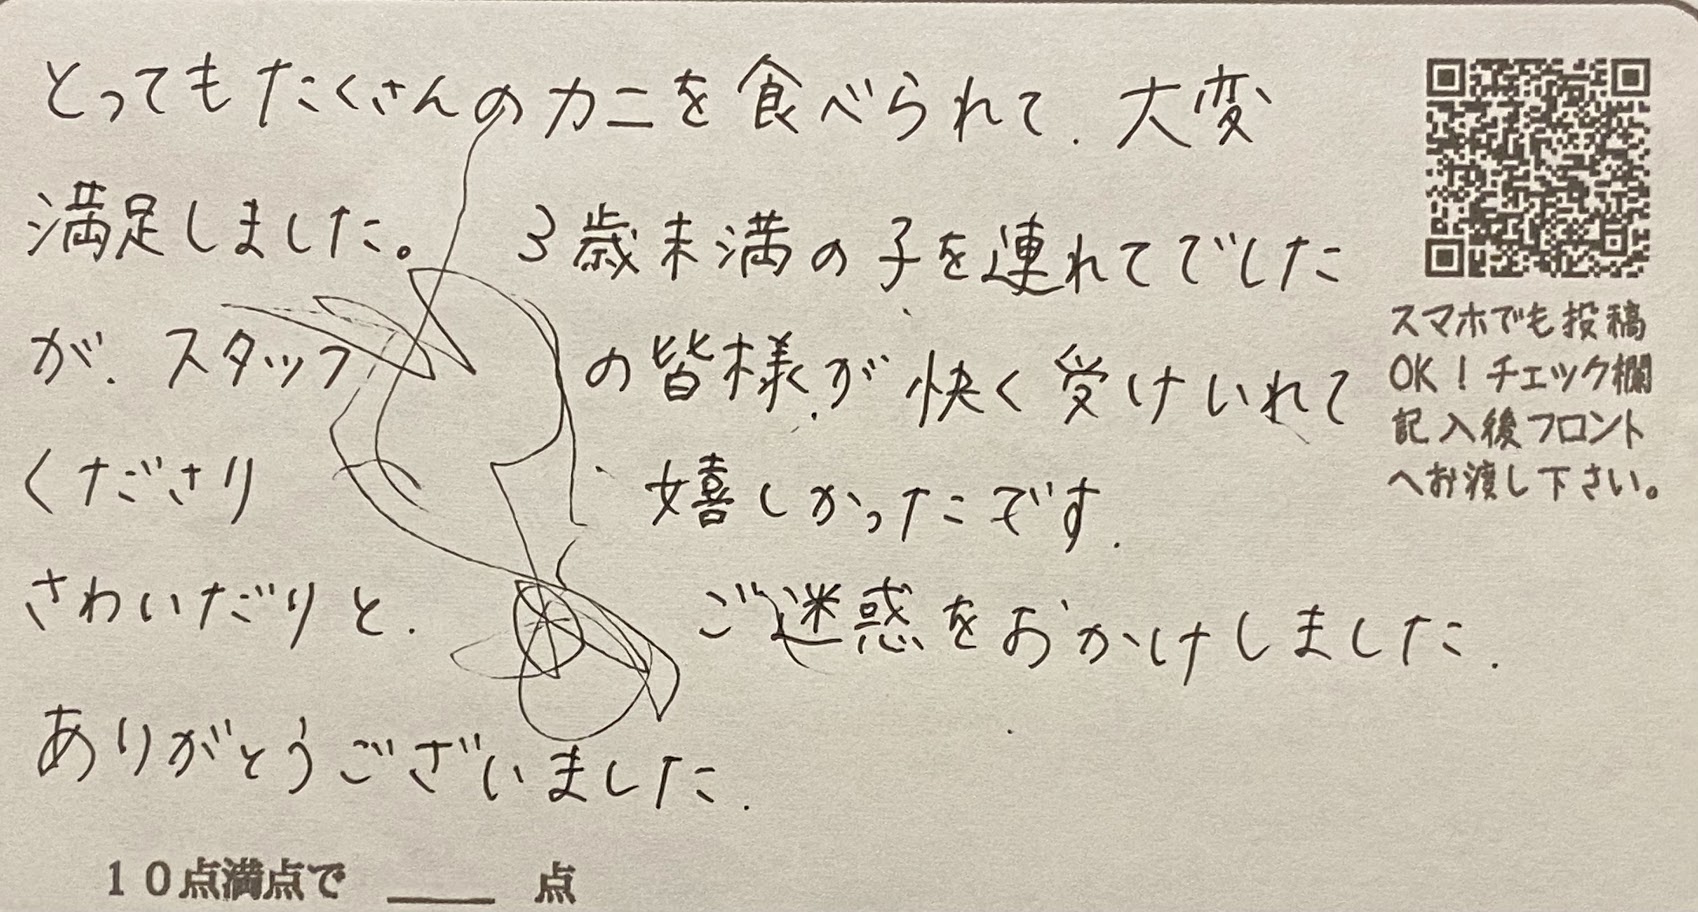 とってもたくさんのカニを食べられて、大変
満足しました。 3歳未満の子を連れてでした
が、スタッフ の皆様が快く受けいれて
くださり 嬉しかったです.
さわいだりと、 ご迷惑をおかけしました.
ありがとうございました.
10点満点で ____ 点
スマホでも投稿
OK!チェック欄
記入後フロント
へお渡し下さい。